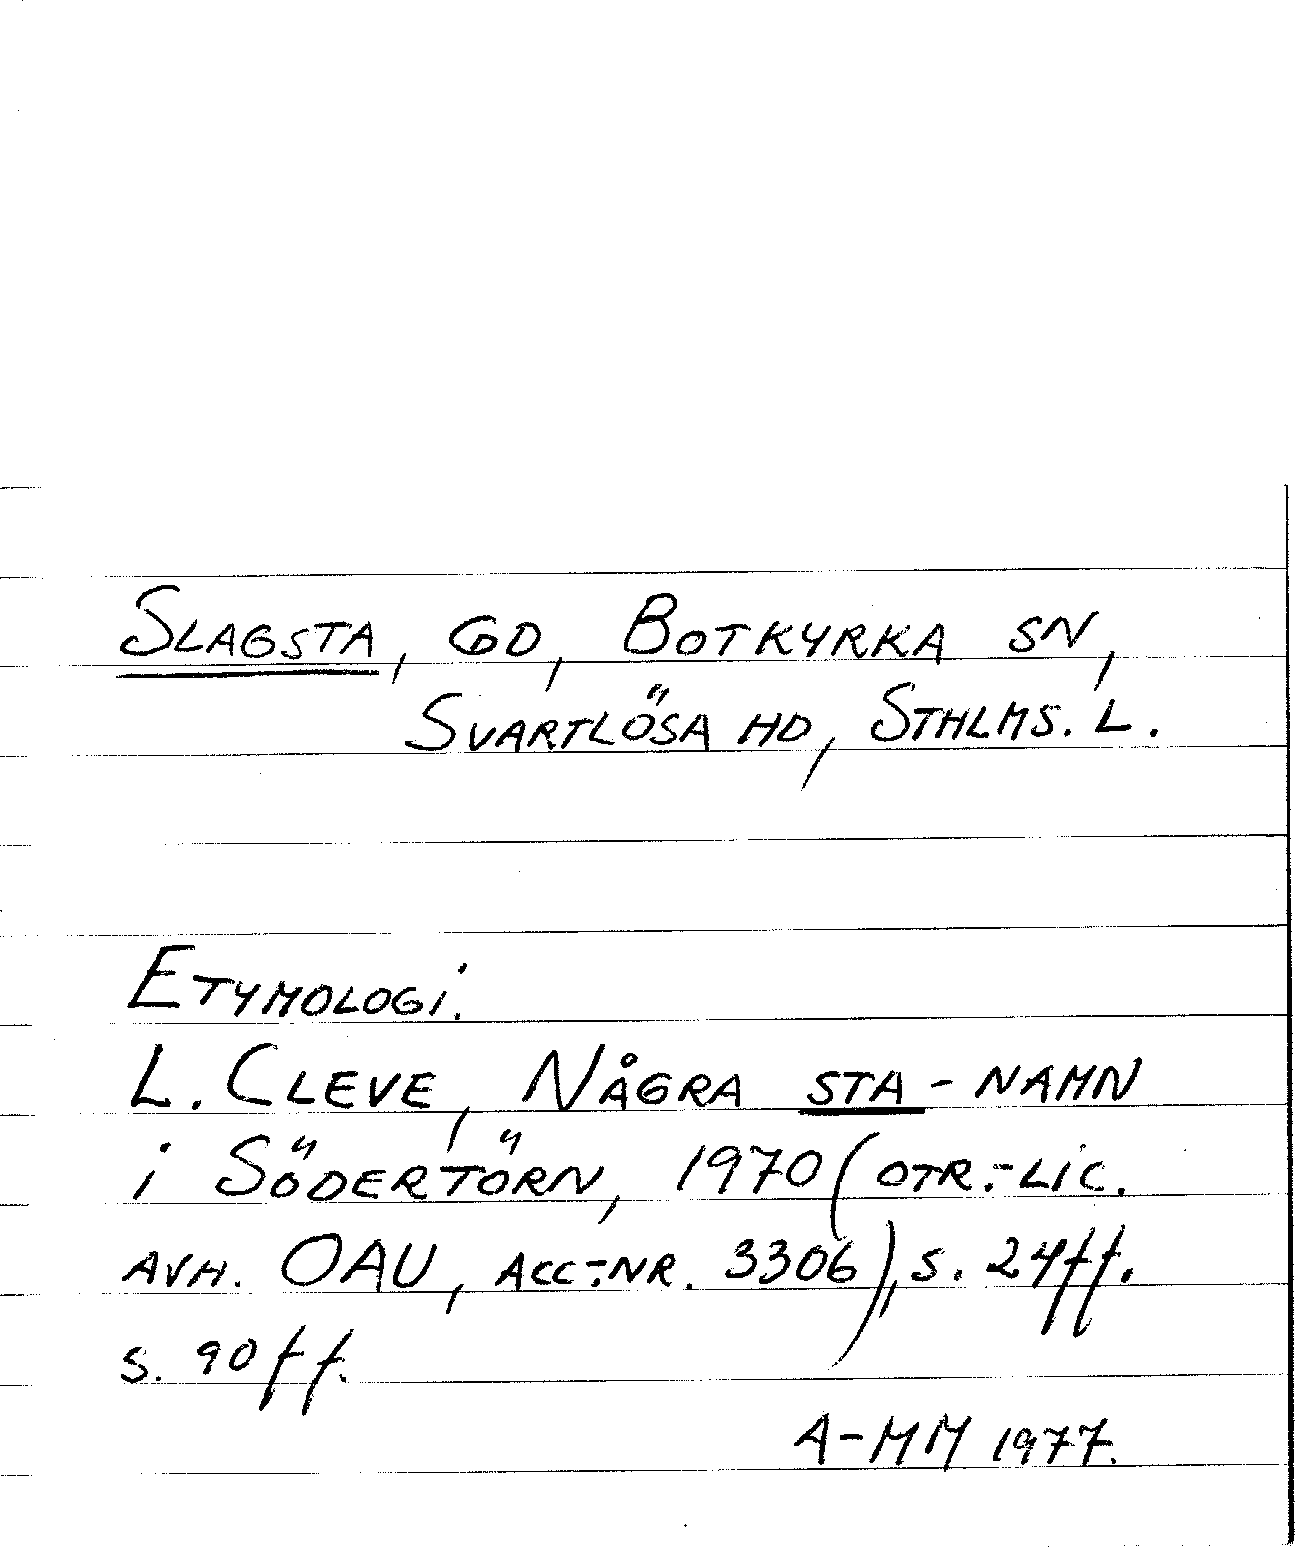 SLAGSTA, GD, BOTKYRKA SN,
SVARTLÖSA HD, STHLMS. L.
ETYMOLOGI.
L. CLEVE, NÅGRA STA-NAMN
i SÖDERTÖRN, 1970 (OTR.-LIC.
AVH. OAU, ACC-NR. 3306), S. 24ff.
S. 90ff.
A-MM 1977.